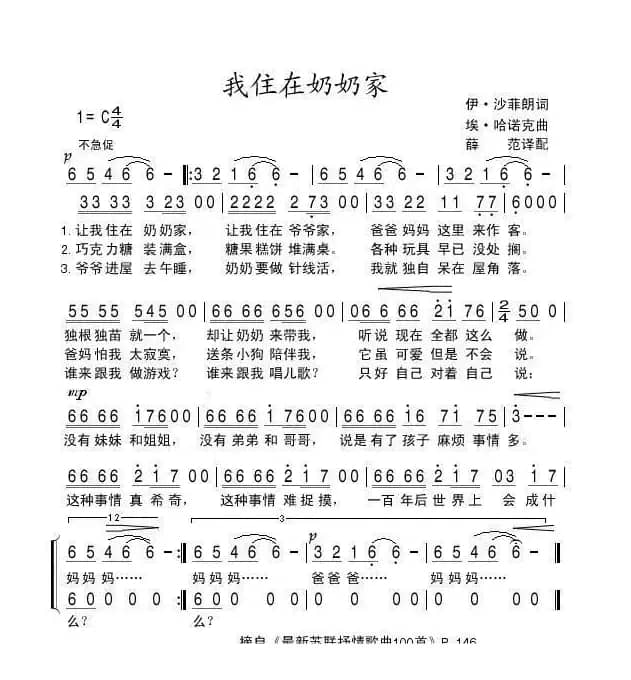 我住在奶奶家
1= C 4/4
伊·沙菲朗词
埃·哈诺克曲
薛 范译配
不急促
p
6 5 4 6 6 - :3 2 1 6 6 - 6 5 4 6 6 - 3 2 1 6 6 -
33 33 3 23 00 2222 2 73 00 33 22 11 77 6000
1. 让我住在 奶奶家， 让我住在爷爷家， 爸爸妈妈 这里 来作 客。
2. 巧克力糖 装满盒， 糖果糕饼 堆满桌。 各种玩具 早已 没处 搁。
3. 爷爷进屋 去午睡， 奶奶要做 针线活， 我就独自 呆在 屋角 落。
55 55 545 00 66 66 656 00 06 6 66 21 76 2/4 50 0
独根独苗 就一个， 却让奶奶 来带我， 听说 现在 全都 这么 做。
爸妈怕我 太寂寞， 送条小狗 陪伴我， 它虽 可爱 但是 不会 说。
谁来跟我 做游戏？ 谁来跟我 唱儿歌？ 只好 自己 对着 自己 说：
mp
66 66 17600 66 66 17600 66 66 16 71 75 3---
没有妹妹 和姐姐， 没有弟弟 和哥哥， 说是有了孩子 麻烦 事情 多。
66 66 2 1 7 00 66 66 2 1 7 00 66 66 2 1 7 03 17
这种事情 真 希奇， 这种事情 难捉摸， 一百年后世界上 会 成什
12 3
p
6 5 4 6 6 - : 6 5 4 6 6 - 3 2 1 6 6 - 6 5 4 6 6 -
妈妈 妈…… 妈妈 妈…… 爸爸 爸…… 妈妈 妈……
6 0 0 0 : 6 0 0 0 0 0 0 0 0 0 0 0
么？ 么？
摘自《最新苏联抒情歌曲100首》P.146